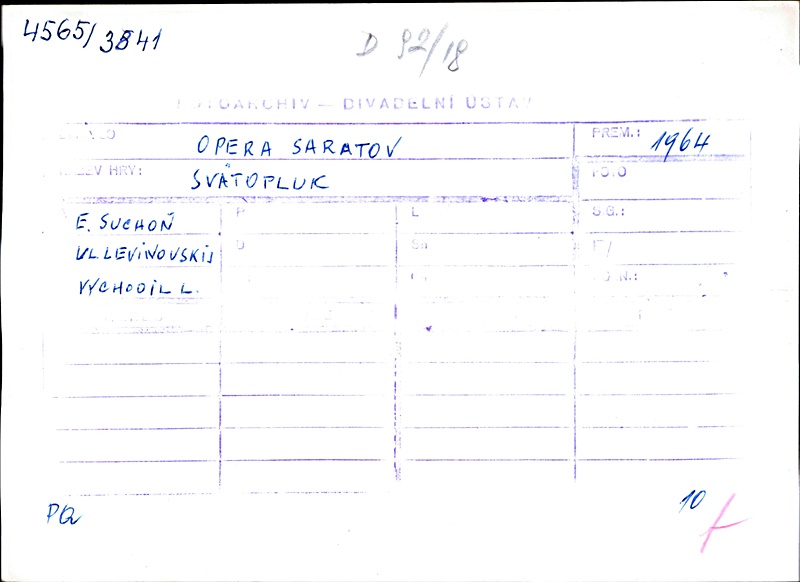 4565/3841
D 92/18
FOTOARCHIV — DIVADELNÍ ÚSTAV
OPERA SARATOV
PREM.: 1964
HRY: SVÄTOPLUK
FOTO
E. SUCHOŇ
P
L
SIG.:
VL. LEVINOVSKIJ
D
Sn
F/
VYCHODIL L.
PQ
10